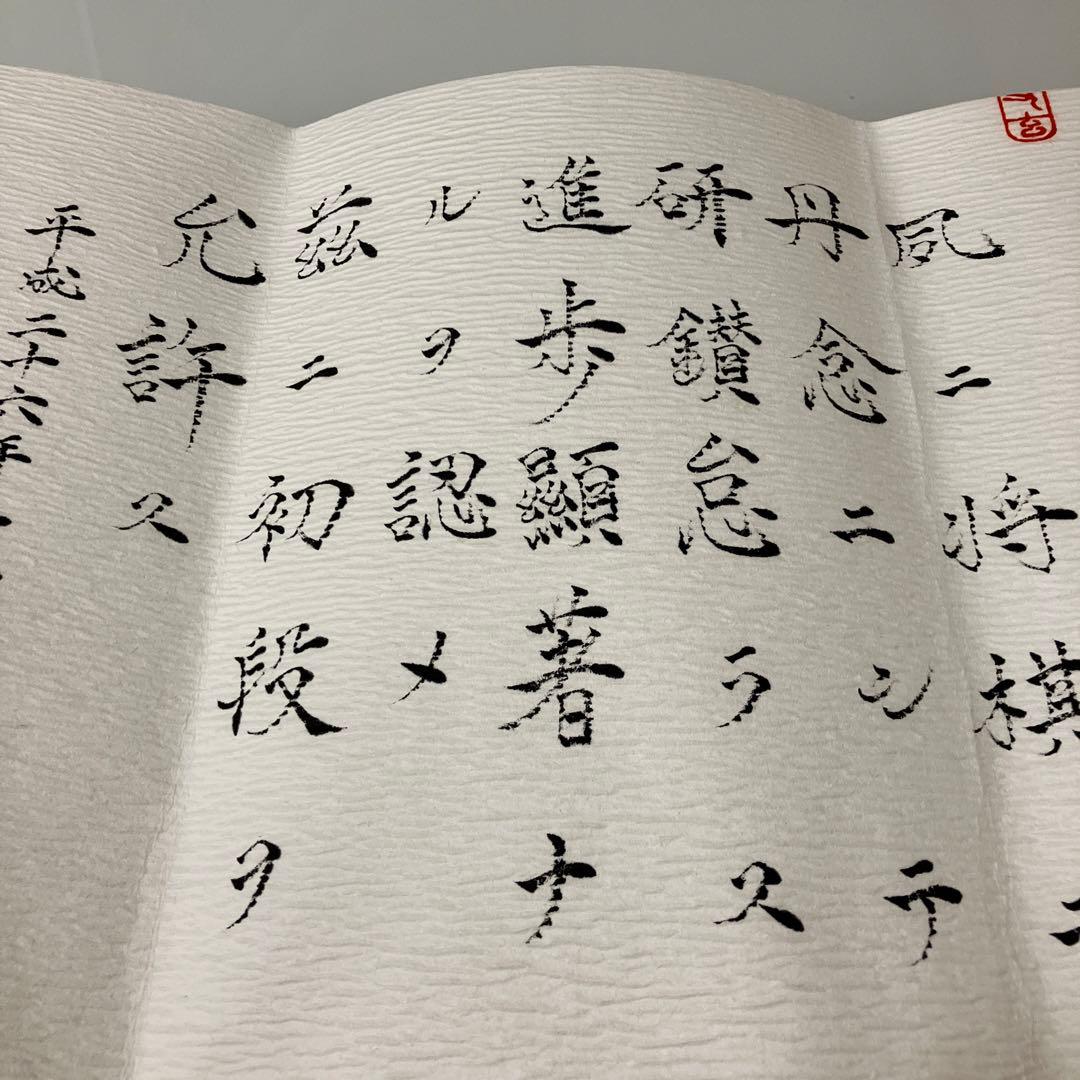 夙ニ将棋ニ
丹念ニシテ
研鑚怠ラス
進歩顯著ナ
ルヲ認メ
茲ニ初段ヲ
允許ス
平成二十六年